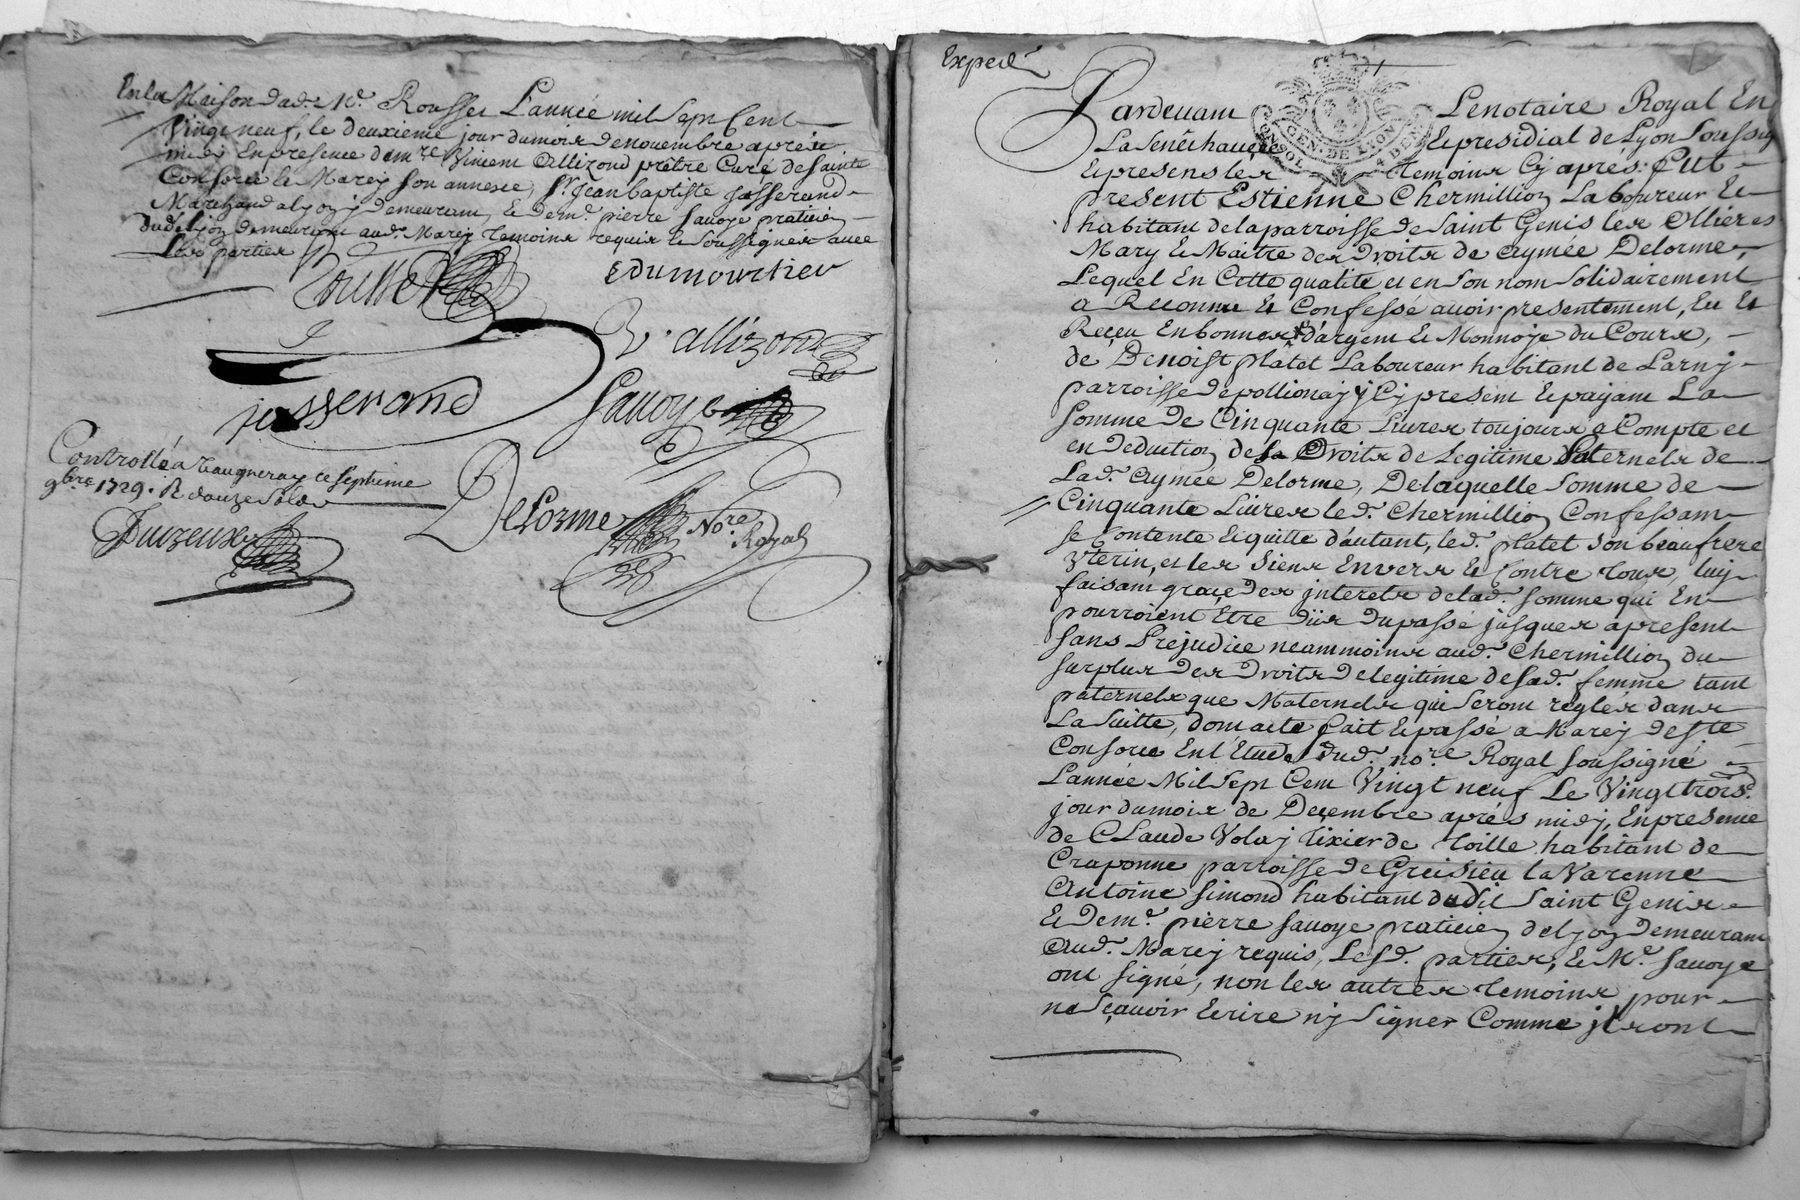 En la Maison dud. Me. Rousset L'année mil sept Cent
Vingt neuf, le deuxieme jour du mois de novembre apres
midy En presence de mre Vincent Allizond prêtre Curé de Sainte
Consorce & Marcy son annexe, Sr. Jean baptiste Josserand
Marchand a lyon y demeurant, & de me. pierre Sauoye praticien
dud. lyon demeurant aud. Marcy temoins requis & soussignés auec
Les parties
Rousset
Edumourtier
V. allizond
josserand
Sauoye
Controllé a Vaugneray ce septieme
9bre 1729. R douze sols
Delorme Nore Royal
Expedr
Pardeuant Le notaire Royal En
La Senêchaucée & presidial de Lyon soussig
GEN. DE LYON 4 DEN
& presens les temoins Cy aprés fut
present Estienne Chermillion Laboureur &
habitant de la parroisse de Saint Genis les Ollieres
Mary & Maitre des Droits de Aymée Delorme,
Lequel En Cette qualité et en son nom solidairement
a Reconnu & Confessé auoir presentement, Eu &
Reçeu En bonnes d'argent & Monnoye du Cours,
de Benoist platet Laboureur habitant de Larny
parroisse de pollionay y Cy present & payant La
somme de Cinquante Livres toujours a Compte et
en deduction des Droits de Legitime paternels de
Lad. Aymée Delorme, De laquelle somme de
Cinquante Livres led. Chermillion Confessant
se Contente & quitte d'autant, led. platet son beaufrere
Vterin, et les siens Envers & Contre tous, luy
faisant grace des jnterets de lad. somme qui En
pourroient Etre düs du passé jusques a present
sans Prejudice neammoins aud. Chermillion du
surplus des Droits de legitime de sad. femme tant
paternels que Maternels qui seront reglés dans
La suitte, dont acte fait & passé a Marcy de Ste
Consorce En l'Etude dud. nore. Royal soussigné
L'année Mil sept Cent Vingt neuf Le Vingt trois.
jour du mois de Deçembre aprés midy, En presence
de Claude Volay tixier de toille habitant de
Craponne parroisse de Greisieu la Varenne
Antoine Simond habitant dudit Saint Genis
& de me. pierre sauoye praticien de lyon demeurant
aud. Marcy requis, Lesd. parties, & Me. sauoye
ont signé, non les autres temoins pour
ne sçauoir Ecrire ny signer Comme jls ont